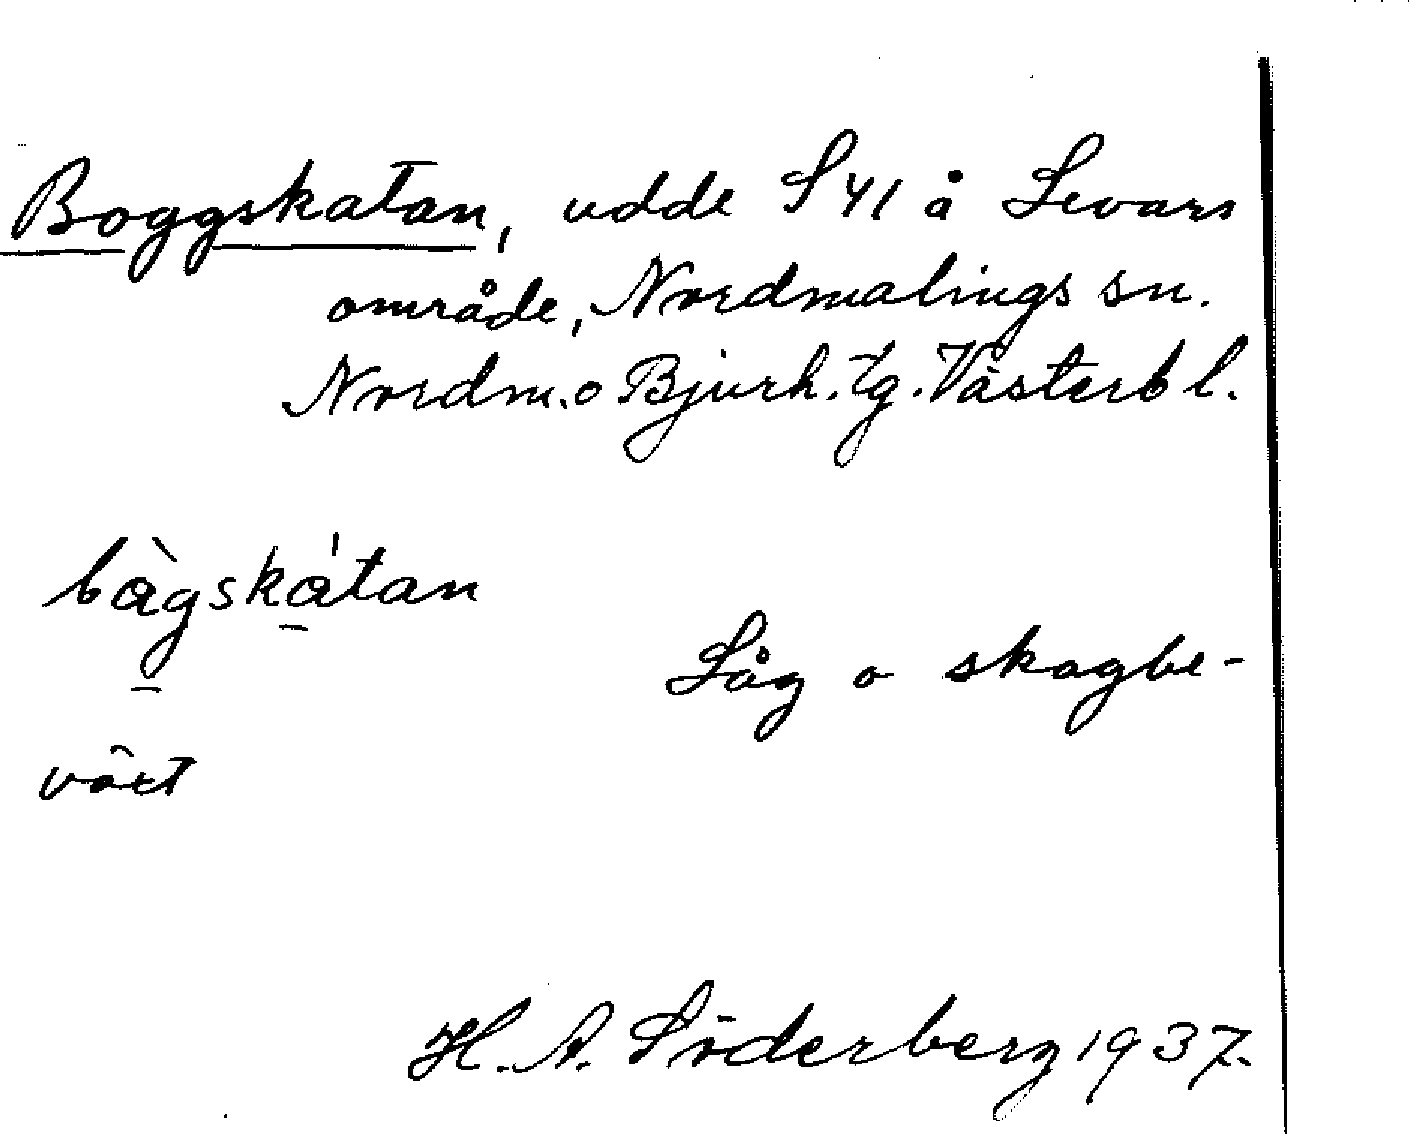 Boggskatan, udde S 41 å Levars
område, Nordmalings sn.
Nordm. o Bjurh. tg. Västerb l.
bàgskátan
Låg o skogbe-
växt
H. A. Söderberg 1937.